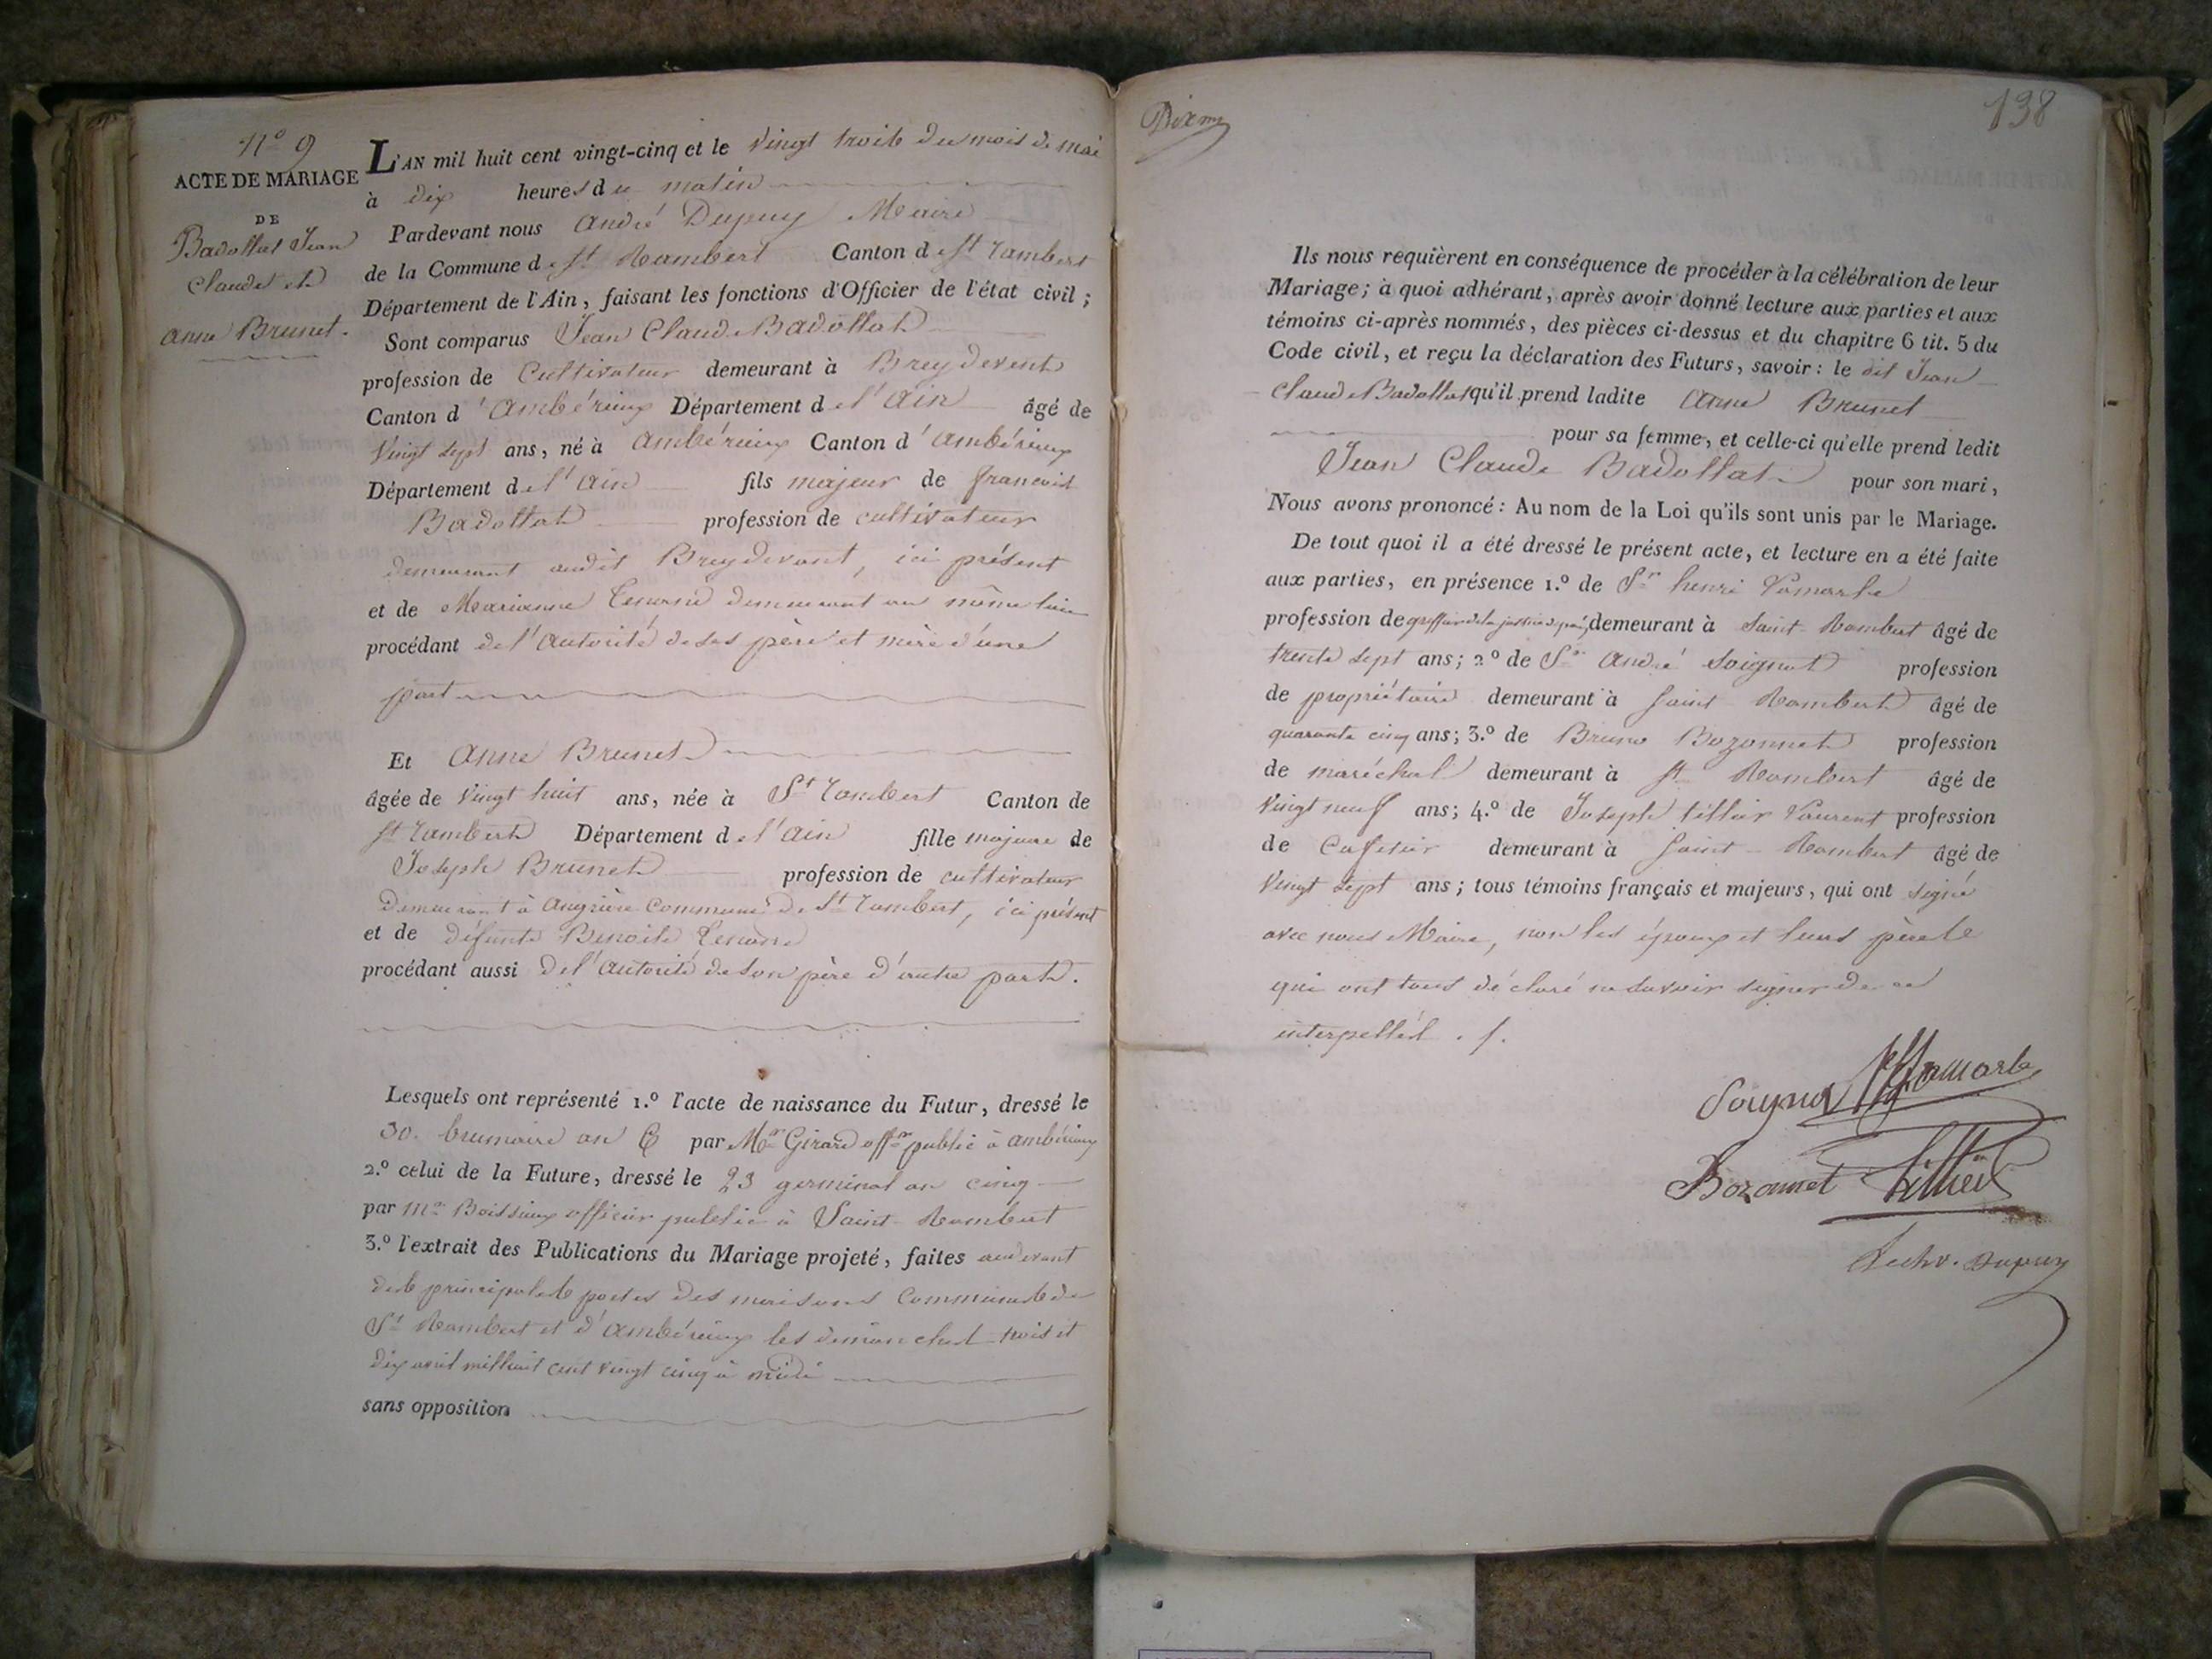 N.o 9
ACTE DE MARIAGE
DE
Badollat Jean
Claude et
Anne Brunet.
L'AN mil huit cent vingt-cinq et le vingt trois du mois de mai
à dix heures du matin
Pardevant nous André Dupuy Maire
de la Commune de St Rambert Canton de St Rambert
Département de l'Ain, faisant les fonctions d'Officier de l'état civil;
Sont comparus Jean Claude Badollat
profession de Cultivateur demeurant à Breydevent
Canton d'Ambérieux Département de l'Ain âgé de
vingt sept ans, né à Ambérieux Canton d'Ambérieux
Département de l'Ain fils majeur de francois
Badollat profession de cultivateur
demeurant audit Breydevant, ici présent
et de Marianne Tenand demeurant au même lieu
procédant de l'Autorité de ses père et mère d'une
part
Et Anne Brunet
âgée de vingt huit ans, née à St Rambert Canton de
St Rambert Département de l'Ain fille majeure de
Joseph Brunet profession de cultivateur
demeurant à Angrière Commune de St Rambert, ici présent
et de défunte Benoite Tenand
procédant aussi de l'Autorité de son père d'autre part.
Lesquels ont représenté 1.o l'acte de naissance du Futur, dressé le
30. brumaire an 6 par Mr Girard offer public à ambérieux
2.o celui de la Future, dressé le 23 germinal an cinq
par Mr Boissieux officier public à Saint-Rambert
3.o l'extrait des Publications du Mariage projeté, faites audevant
des principales portes des maisons Communes de
St Rambert et d'Ambérieux les dimanches trois et
dix avril mil huit cent vingt cinq à midi
sans opposition
138
Ils nous requièrent en conséquence de procéder à la célébration de leur
Mariage; à quoi adhérant, après avoir donné lecture aux parties et aux
témoins ci-après nommés, des pièces ci-dessus et du chapitre 6 tit. 5 du
Code civil, et reçu la déclaration des Futurs, savoir: le dit Jean
Claude Badollat qu'il prend ladite Anne Brunet
pour sa femme, et celle-ci qu'elle prend ledit
Jean Claude Badollat pour son mari,
Nous avons prononcé: Au nom de la Loi qu'ils sont unis par le Mariage.
De tout quoi il a été dressé le présent acte, et lecture en a été faite
aux parties, en présence 1.o de Sr henri Lamarle
profession de greffier de la justice de paix, demeurant à Saint-Rambert âgé de
trente sept ans; 2.o de Sr André Soignet profession
de propriétaire demeurant à Saint Rambert âgé de
quarante cinq ans; 3.o de Bruno Bozonnet profession
de maréchal demeurant à St Rambert âgé de
vingt neuf ans; 4.o de Joseph Laurent profession
de Cafetier demeurant à Saint-Rambert âgé de
vingt sept ans; tous témoins français et majeurs, qui ont signé
avec nous Maire, non les époux et leurs pères
qui ont tous déclaré ne savoir signer de ce
interpellés ./.
Lamarle
Bozonnet
Dupuy